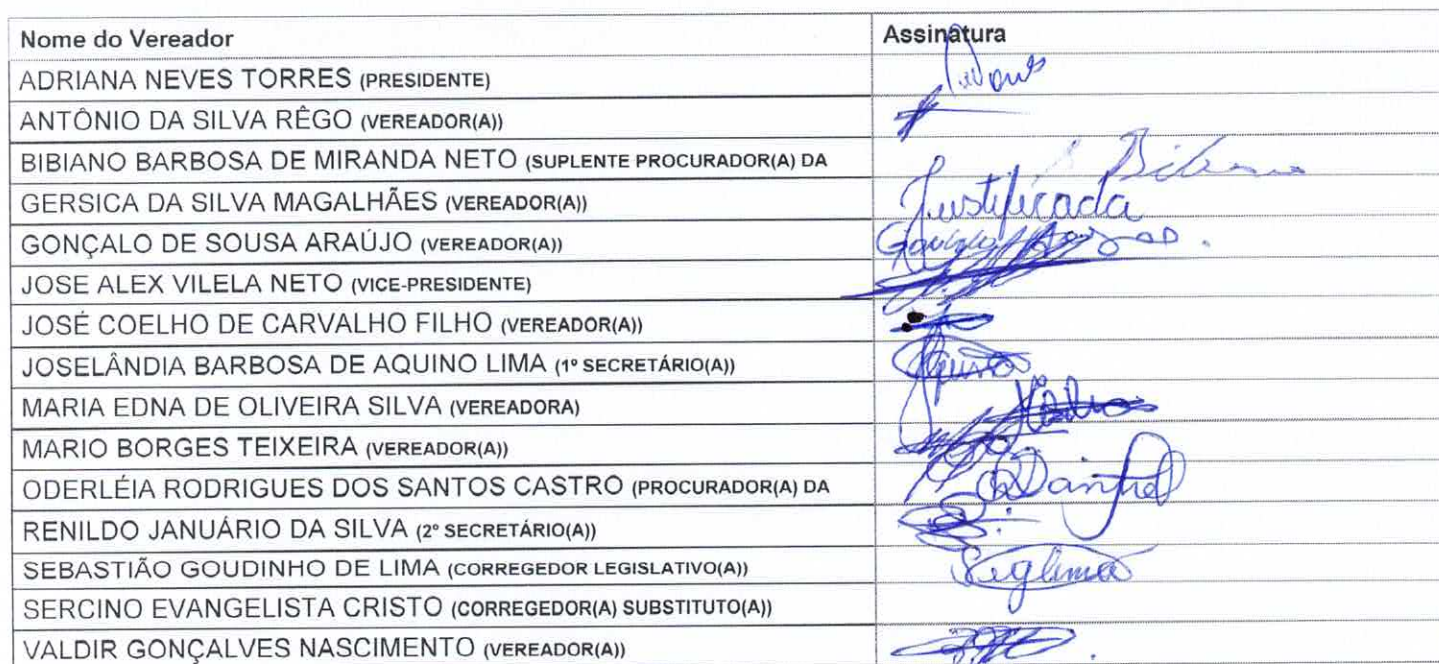 Nome do Vereador Assinatura
ADRIANA NEVES TORRES (PRESIDENTE)
ANTÔNIO DA SILVA RÊGO (VEREADOR(A))
BIBIANO BARBOSA DE MIRANDA NETO (SUPLENTE PROCURADOR(A) DA
GERSICA DA SILVA MAGALHÃES (VEREADOR(A)) Justificada
GONÇALO DE SOUSA ARAÚJO (VEREADOR(A))
JOSE ALEX VILELA NETO (VICE-PRESIDENTE)
JOSÉ COELHO DE CARVALHO FILHO (VEREADOR(A))
JOSELÂNDIA BARBOSA DE AQUINO LIMA (1º SECRETÁRIO(A))
MARIA EDNA DE OLIVEIRA SILVA (VEREADORA)
MARIO BORGES TEIXEIRA (VEREADOR(A))
ODERLÉIA RODRIGUES DOS SANTOS CASTRO (PROCURADOR(A) DA
RENILDO JANUÁRIO DA SILVA (2º SECRETÁRIO(A))
SEBASTIÃO GOUDINHO DE LIMA (CORREGEDOR LEGISLATIVO(A))
SERCINO EVANGELISTA CRISTO (CORREGEDOR(A) SUBSTITUTO(A))
VALDIR GONÇALVES NASCIMENTO (VEREADOR(A))